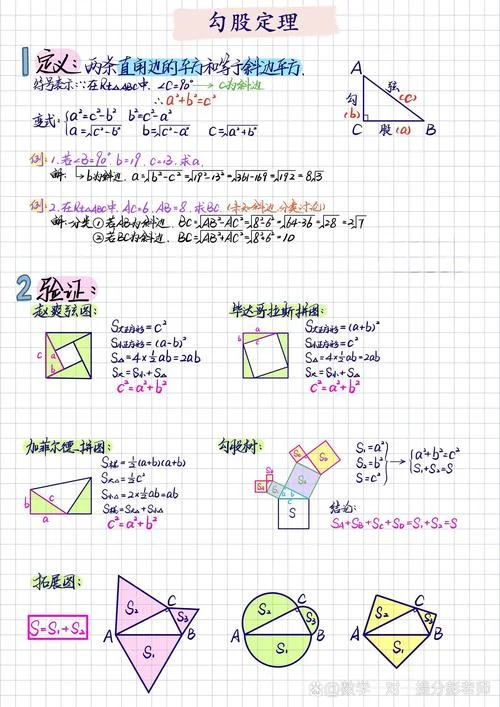 勾股定理
1 定义: 两条直角边的平方和等于斜边平方.
符号表示:∵在Rt△ABC中, ∠C=90° → C为斜边
∴a²+b²=c²
变式: { a²=c²-b² b²=c²-a²
a=√c²-b² b=√c²-a² c=√a²+b²
A
勾
(b)
弦
(c)
C 股 (a) B
例: 1. 若∠B=90°, b=19, c=13, 求a.
解: → b为斜边, a=√b²-c²=√19²-13²=√361-169=√192=8√3
例: 2. 在Rt△ABC中, AC=6, AB=8, 求BC.
解: 分类 ①若AB为斜边, BC=√AB²-AC²=√8²-6²=√64-36=√28=2√7
②若BC为斜边, BC=√AB²+AC²=√8²+6²=10
2 验证:
赵爽弦图:
c a b
S大正方形=c²
S小正方形=(a-b)²
S△=4×½ab=2ab
S大=S小+S△
c²=a²+b²
毕达哥拉斯拼图:
a c b
S大正方形=(a+b)²
S△=4×½ab=2ab
c²=a²+b²
加菲尔德拼图:
b c a
S梯=½(a+b)(a+b)
S大△=½c²
S小△=2×½ab=ab
S梯=S大△+S小△
c²=a²+b²
勾股树:
S
S₁=a²
S₂=b²
S=c²
→ { a²+b²=c²
S₁+S₂=S
结论:
SA+SB+SC+SD=S₁+S₂=S
拓展图:
S=S₁+S₂
A B C S₁ S₂ S₃
A B C S₁ S₂ S₃
A B C S₁ S₂ S₃